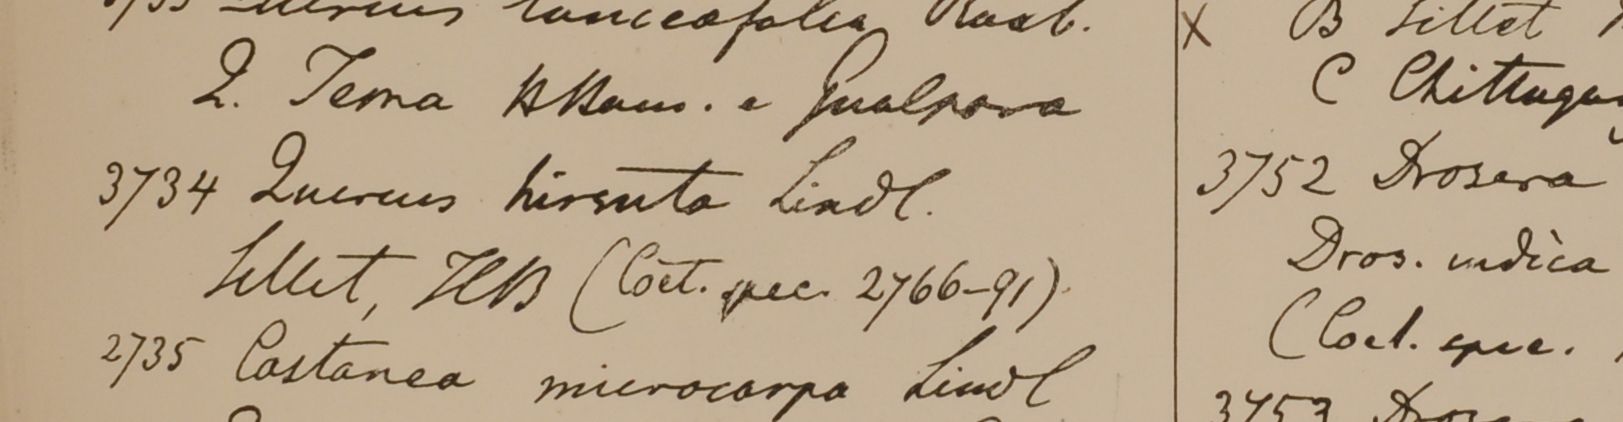 Quercus lanceafolia Roxb.
Q. Tema Goalpara
3734 Quercus hirsuta Lindl.
Sillet, HB (Coet. spec. 2766-91)
2735 Castanea microcarpa Lindl
X B Sillet
C Chittago
3752 Drosera
Dros. indica
(Coel. spec.
3753 Drosera